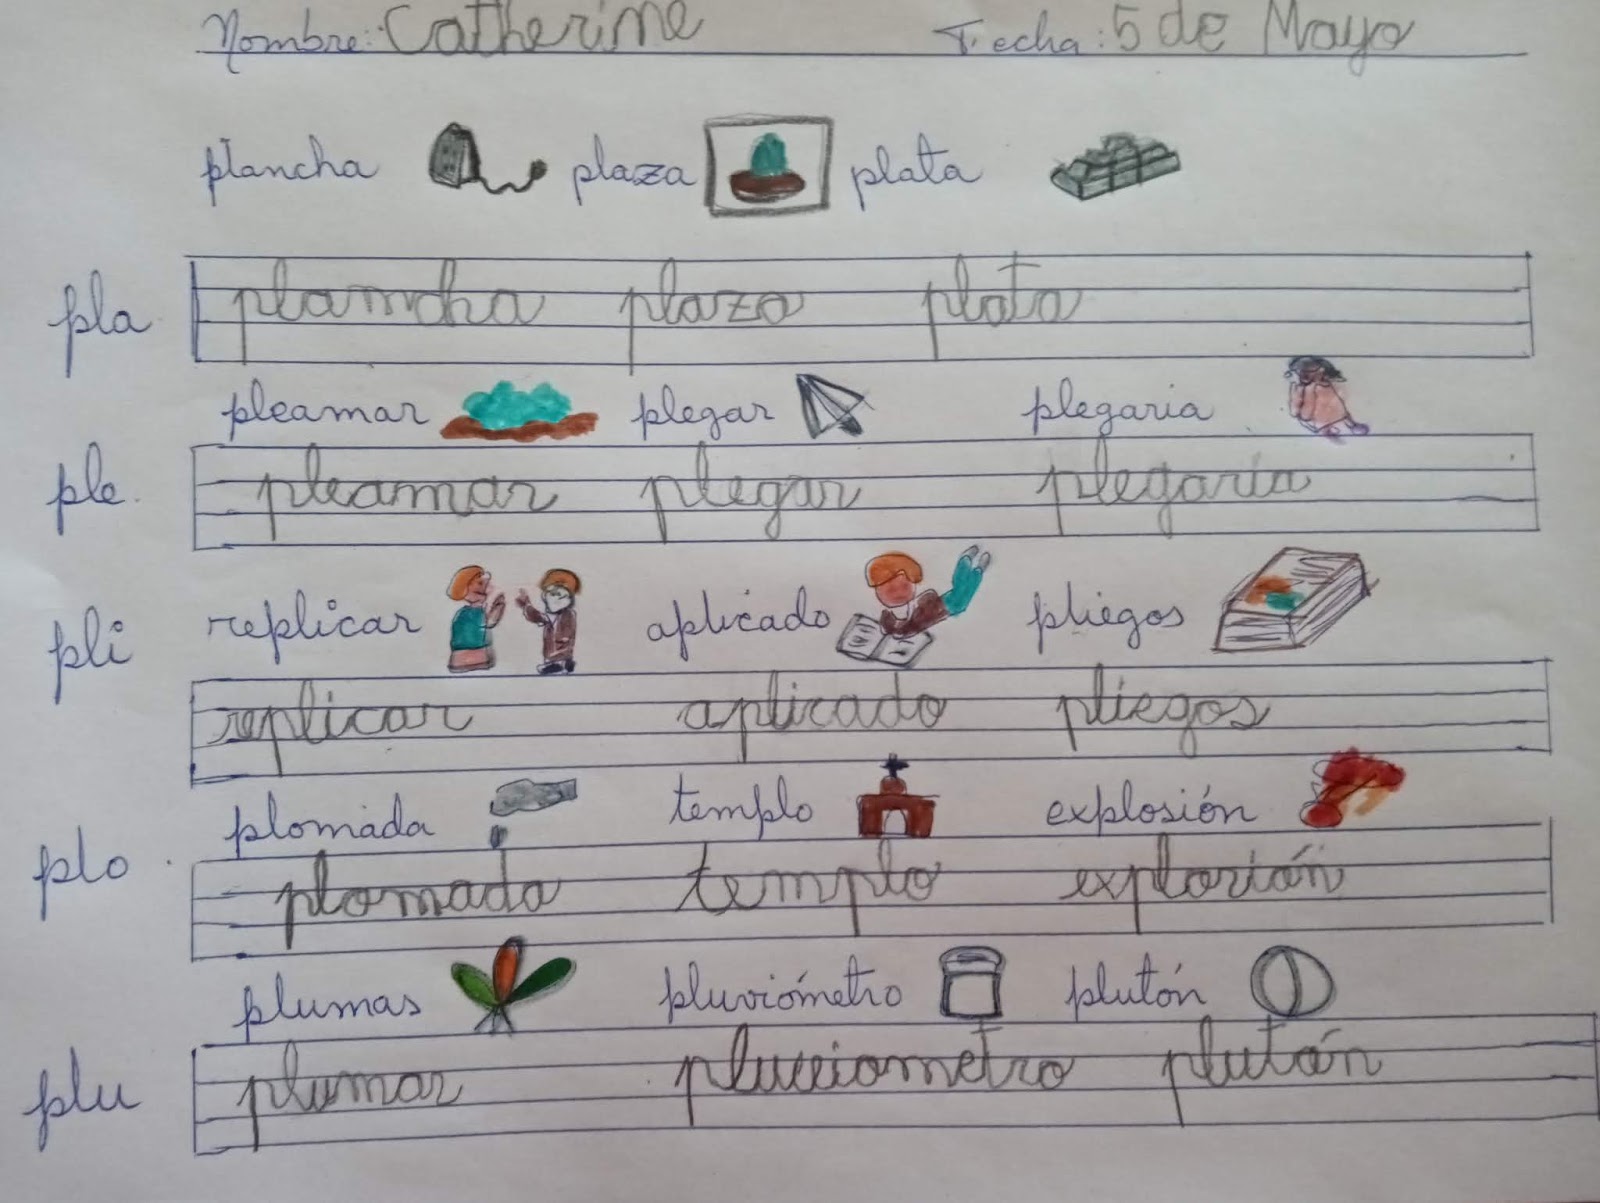 Nombre: Catherine Fecha: 5 de Mayo
plancha plaza plata
pla plamcha plaza plata
pleamar plegar plegaria
ple pleamar plegar plegaria
replicar aplicado pliegos
pli replicar aplicado pliegos
plomada templo explosión
plo plomada templo explorión
plumas pluviómetro plutón
plu plumar pluviometro plután